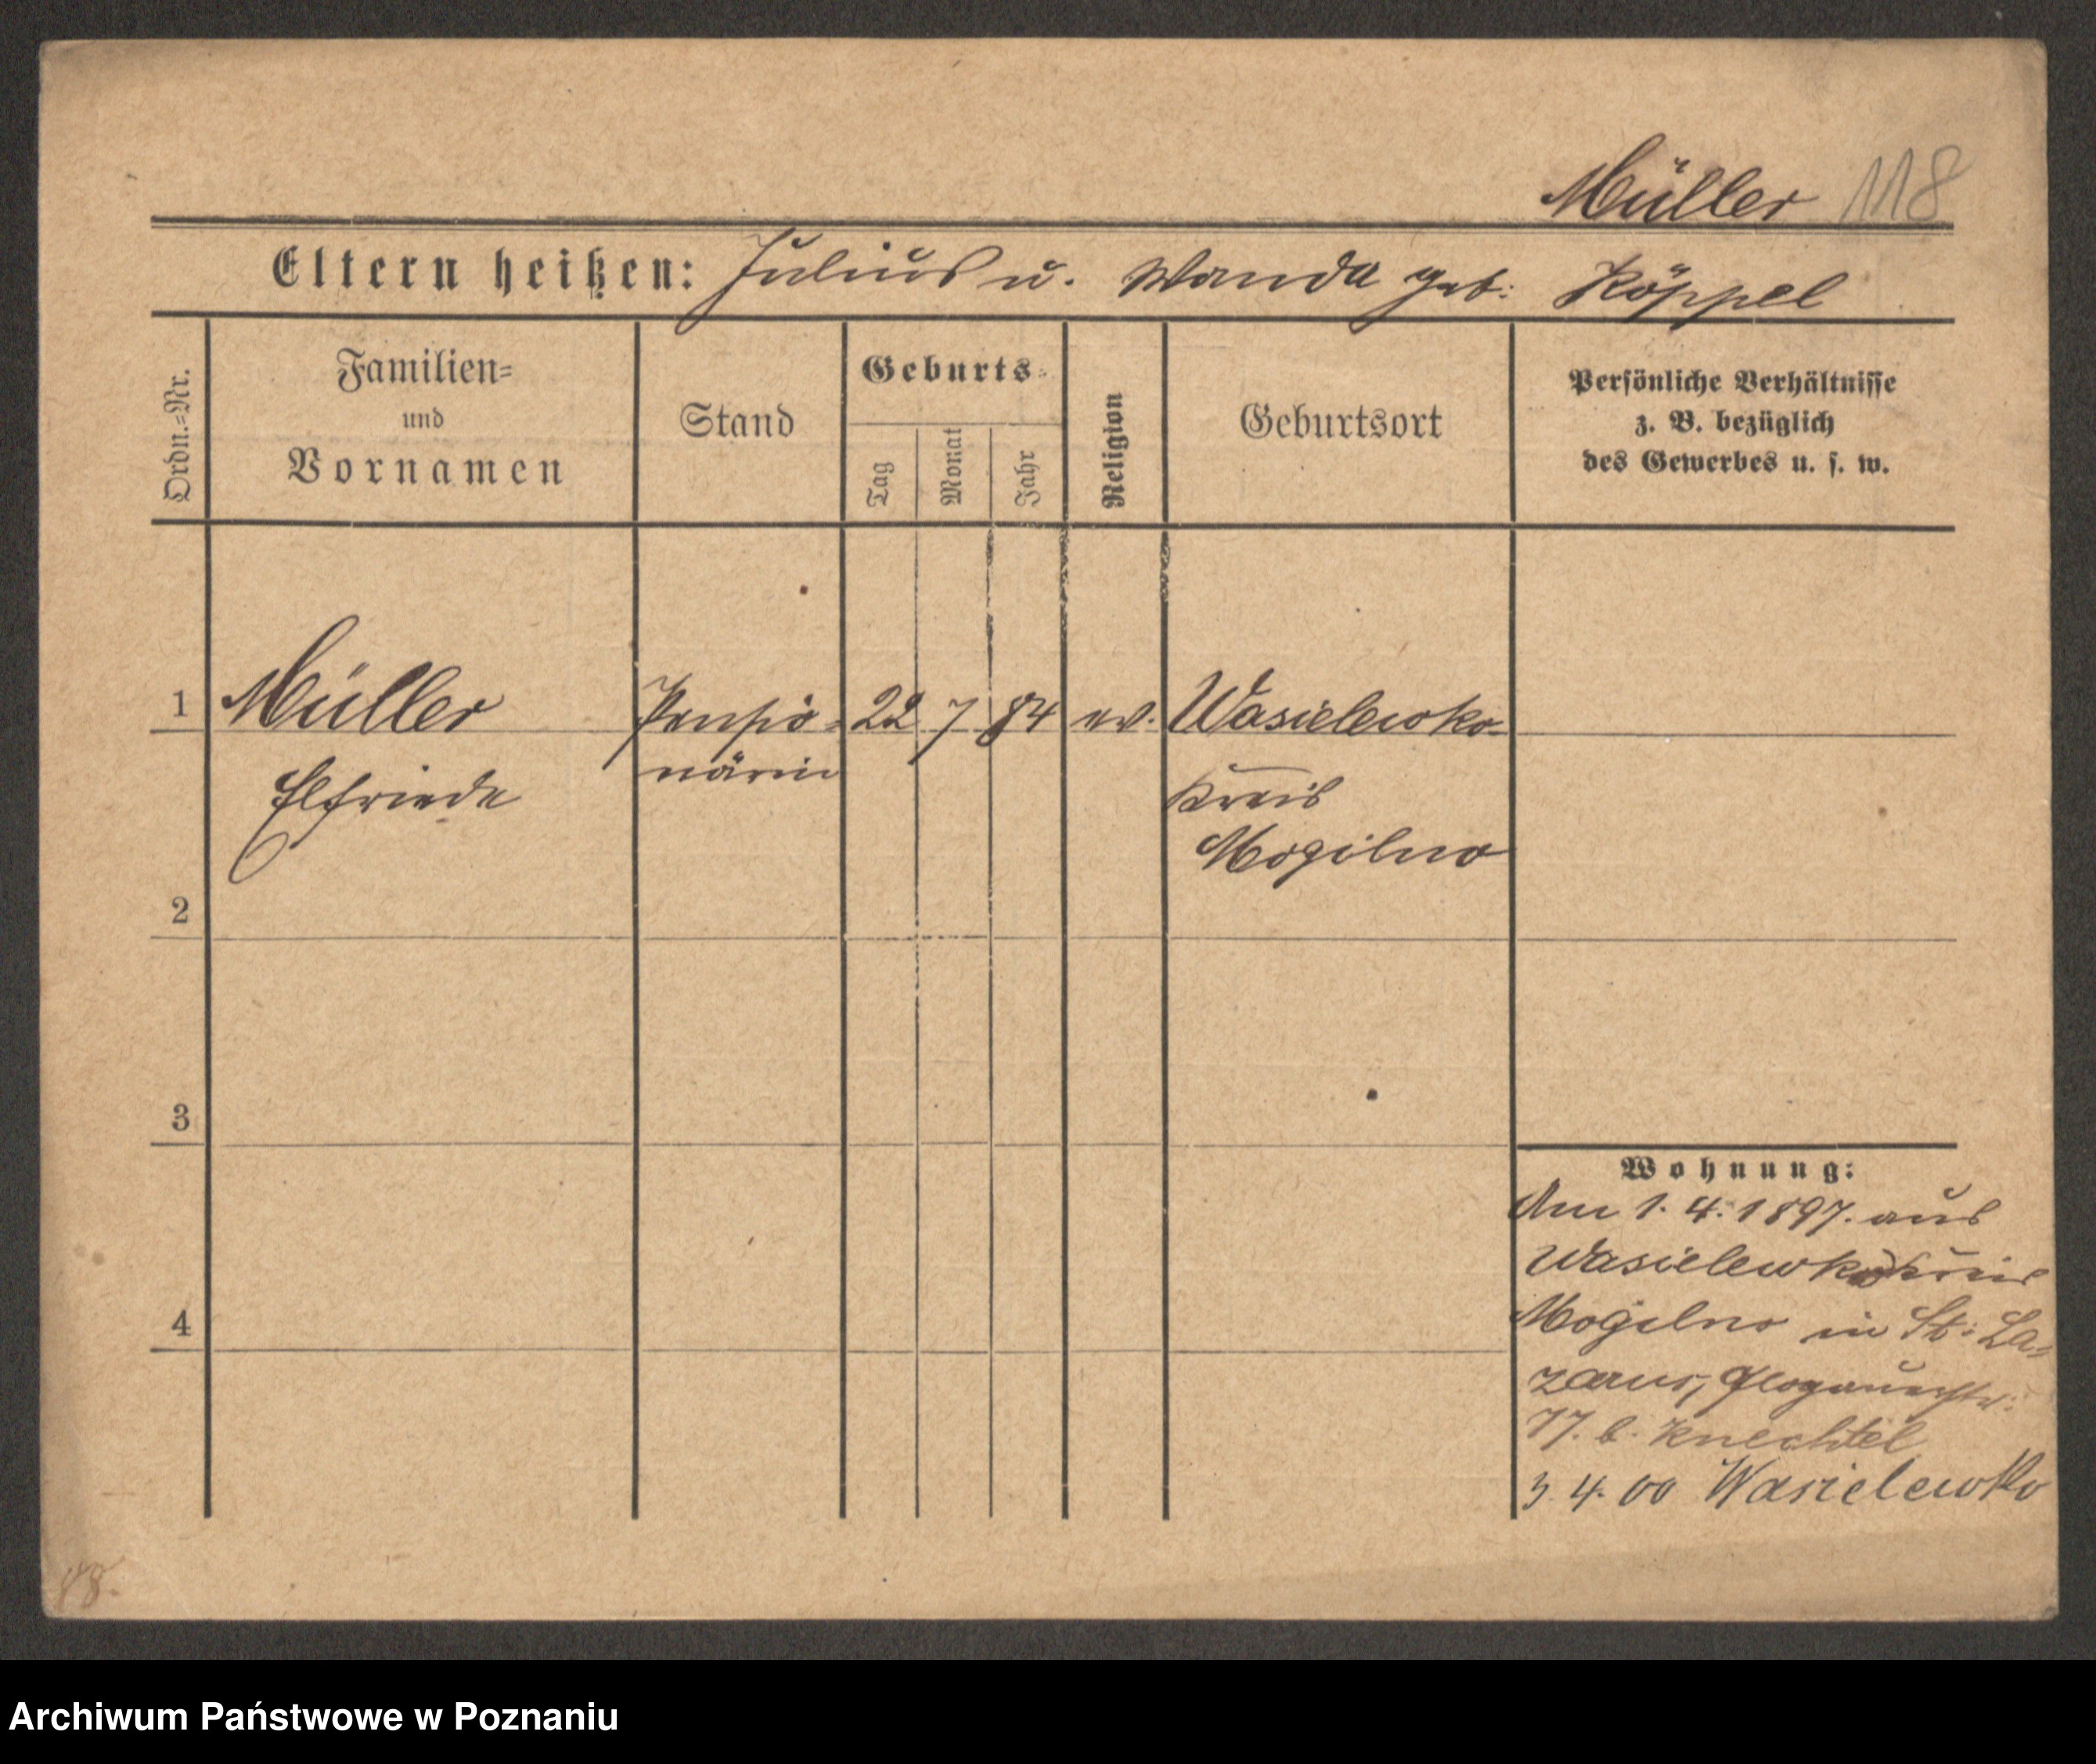 Müller 118
Eltern heißen: Julius u. Wanda geb: Köppel
Ordn.=Nr.
Familien=
und
Vornamen
Stand
Geburts=
Tag
Monat
Jahr
Religion
Geburtsort
Persönliche Verhältnisse
z. B. bezüglich
des Gewerbes u. s. w.
1 Müller Pensio= 22 7 84 ev. Wasielewko
närin
Elfriede Kreis
Mogilno
2
3
4
Wohnung:
Am 1. 4. 1897. aus
Wasielewko Kreis
Mogilno in St: La=
zarus, Glogauerstr:
77. b. Knechtel
3. 4. 00 Wasielewko
Archiwum Państwowe w Poznaniu